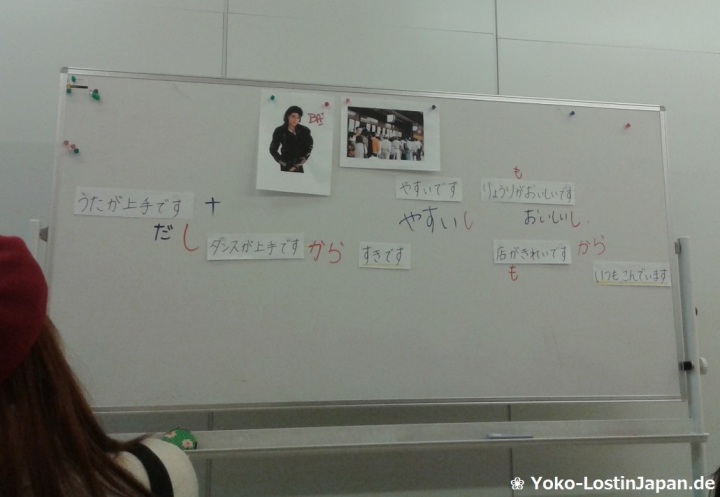 Bad
やすいです
も
りょうりがおいしいです
うたが上手です
+
やすいし
おいしいし
だし
ダンスが上手です
から
すきです
店がきれいです
から
も
いつもこんでいます
❀ Yoko-LostinJapan.de